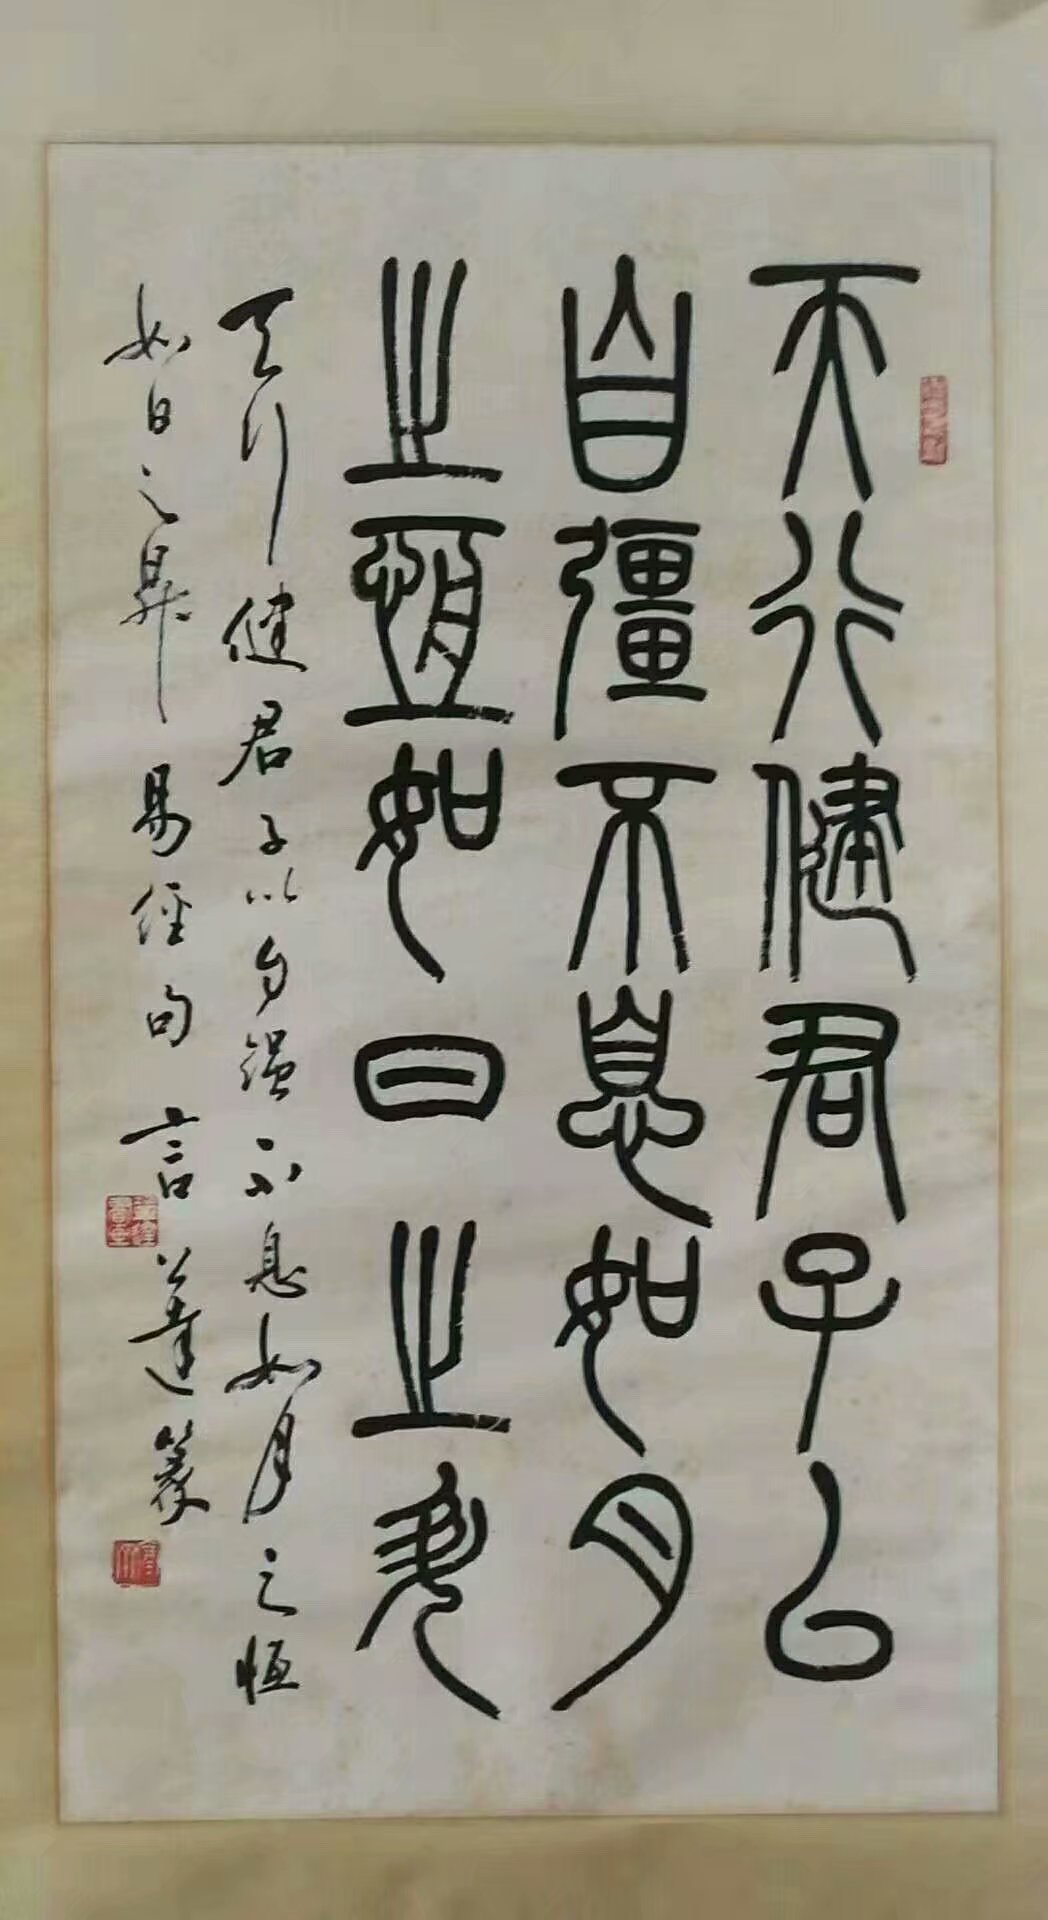 天行健君子以
自彊不息如月
之恆如日之昇
天行健君子以自強不息如月之恒
如日之昇 易經句 言公達篆